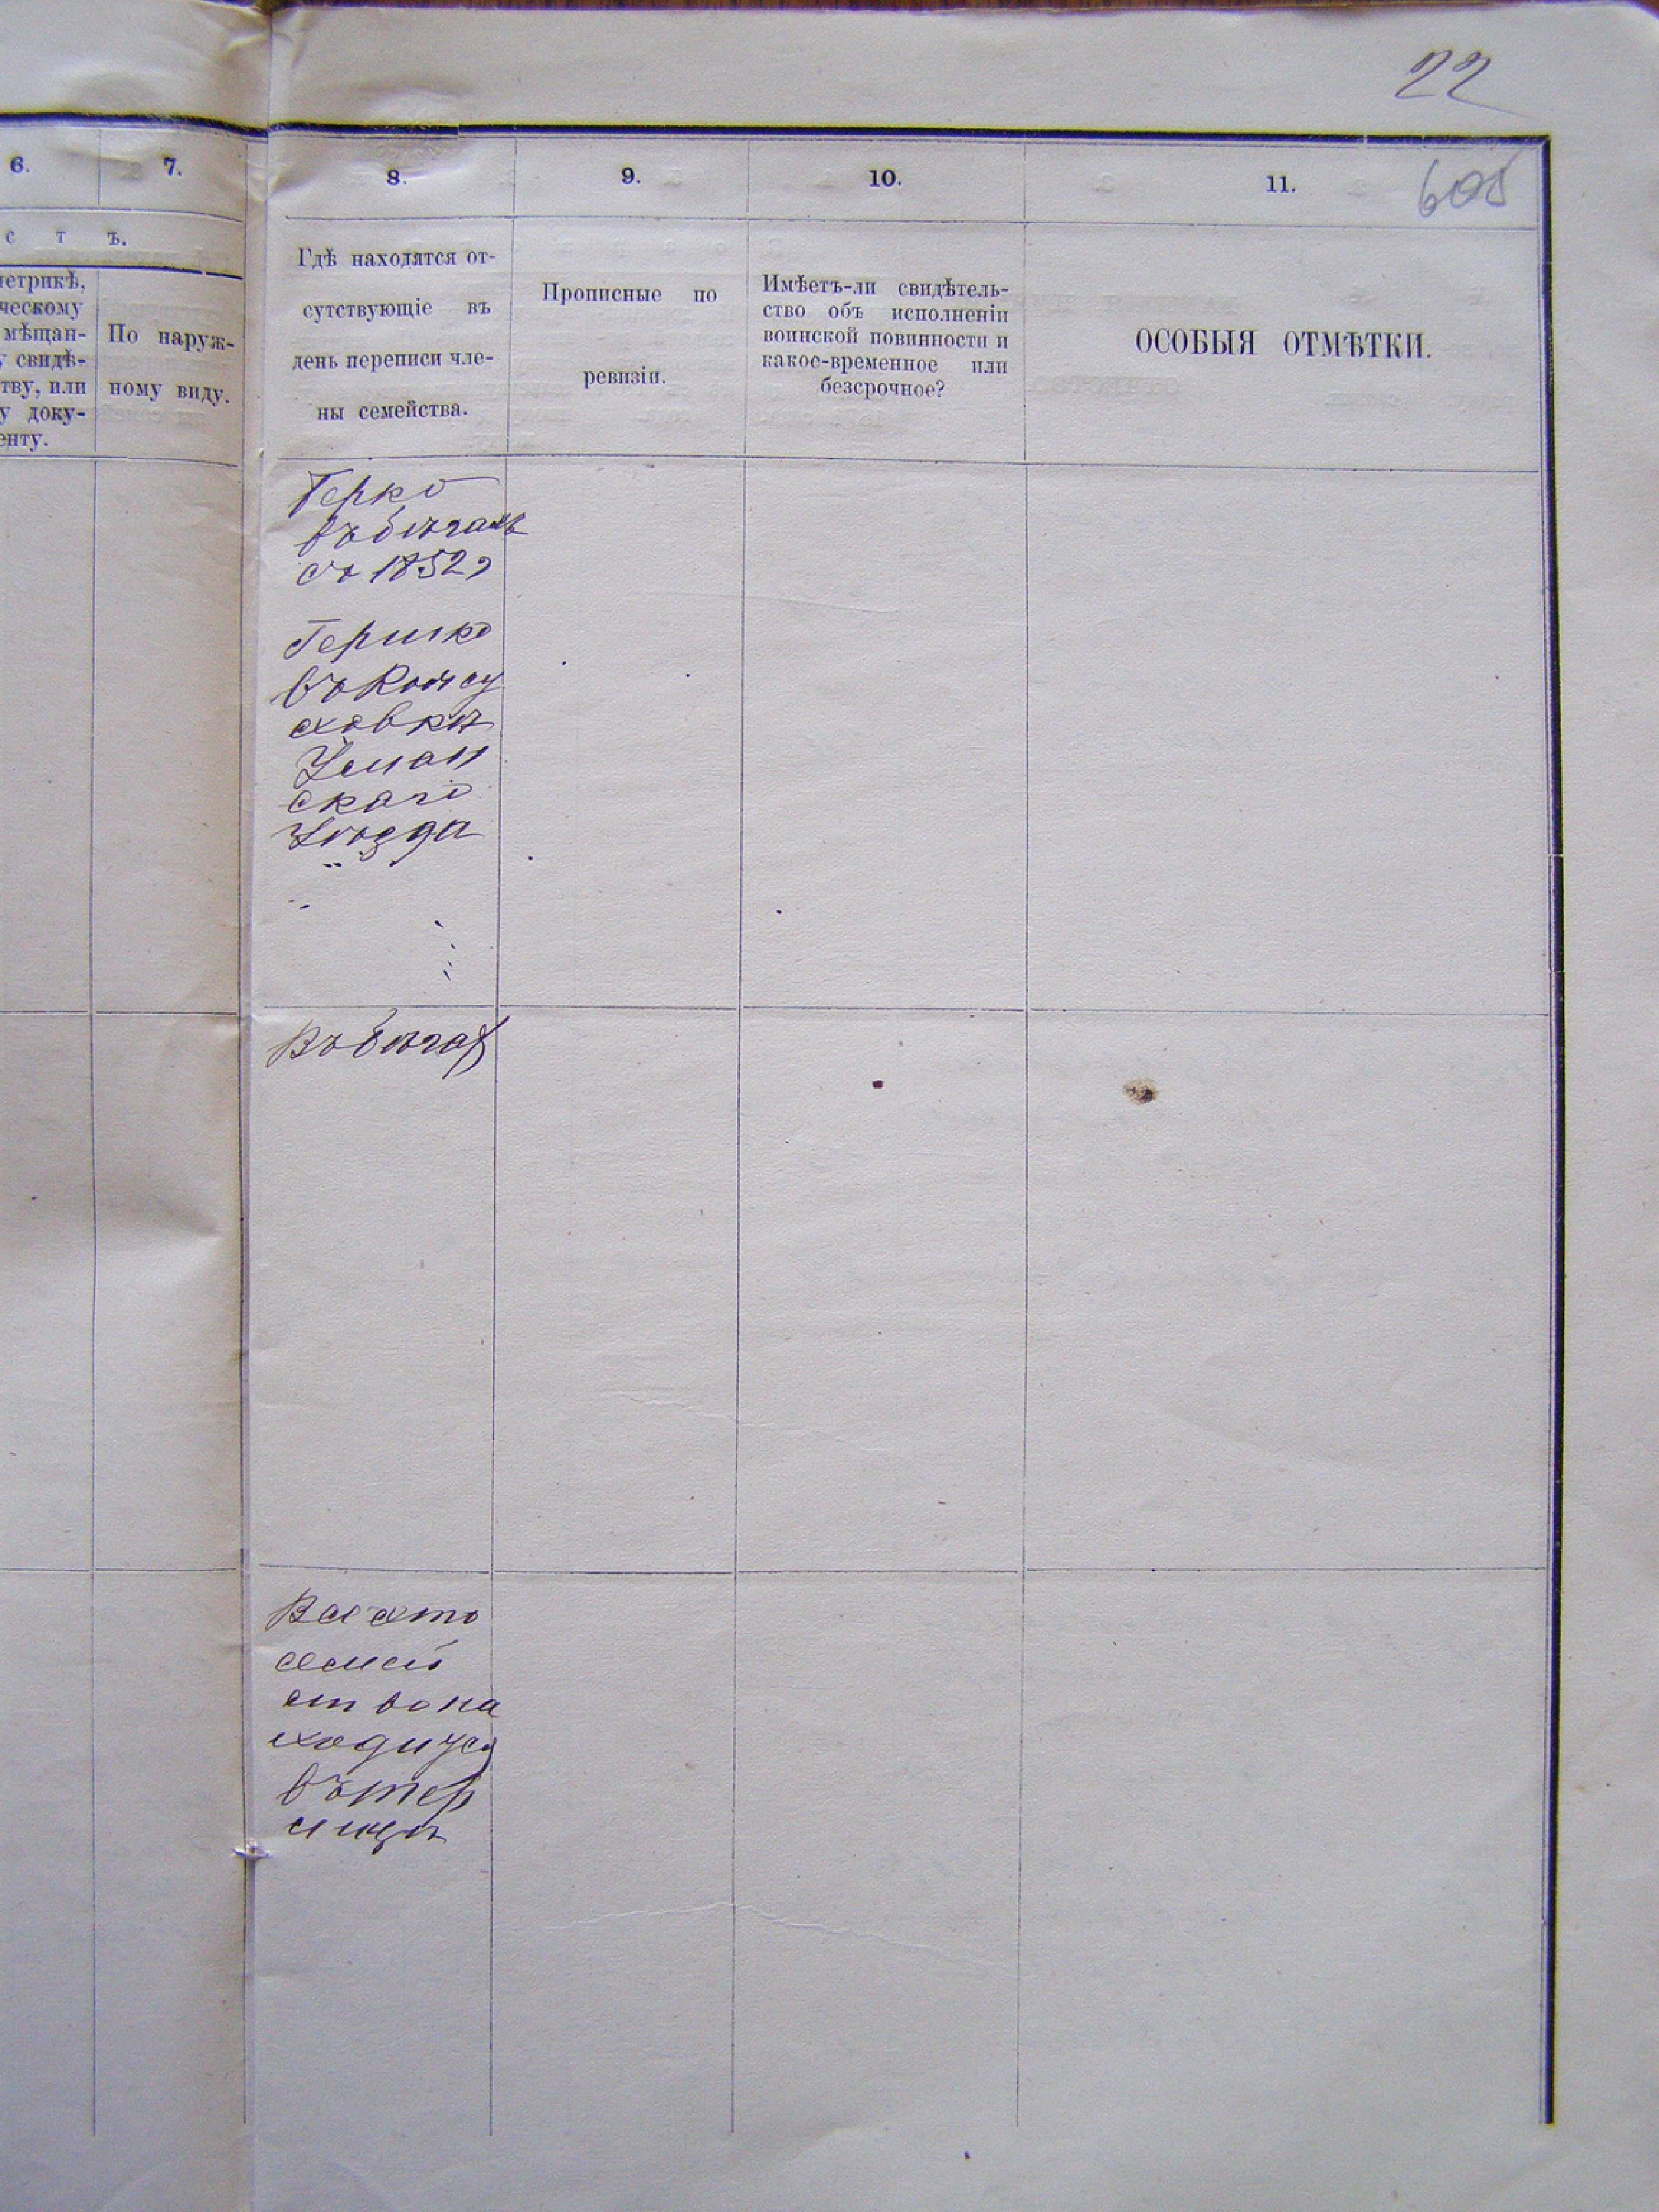 22
6.
7.
8.
9.
10.
11.
605
с т ъ.
метрикѣ,
ческому
мѣщан-
у свидѣ-
тву, или
у доку-
енту.
По наруж-
ному виду.
Гдѣ находятся от-
сутствующіе въ
день переписи чле-
ны семейства.
Прописные по
ревизіи.
Имѣетъ-ли свидѣтель-
ство объ исполненіи
воинской повинности и
какое-временное или
безсрочное?
ОСОБЫЯ ОТМѢТКИ.
Герко
въ бѣгахъ
съ 1852 г
Гершко
въ
ховкѣ
Уман
скаго
Уѣзда
Въ бѣгах
Все это
семей
ство на
ходится